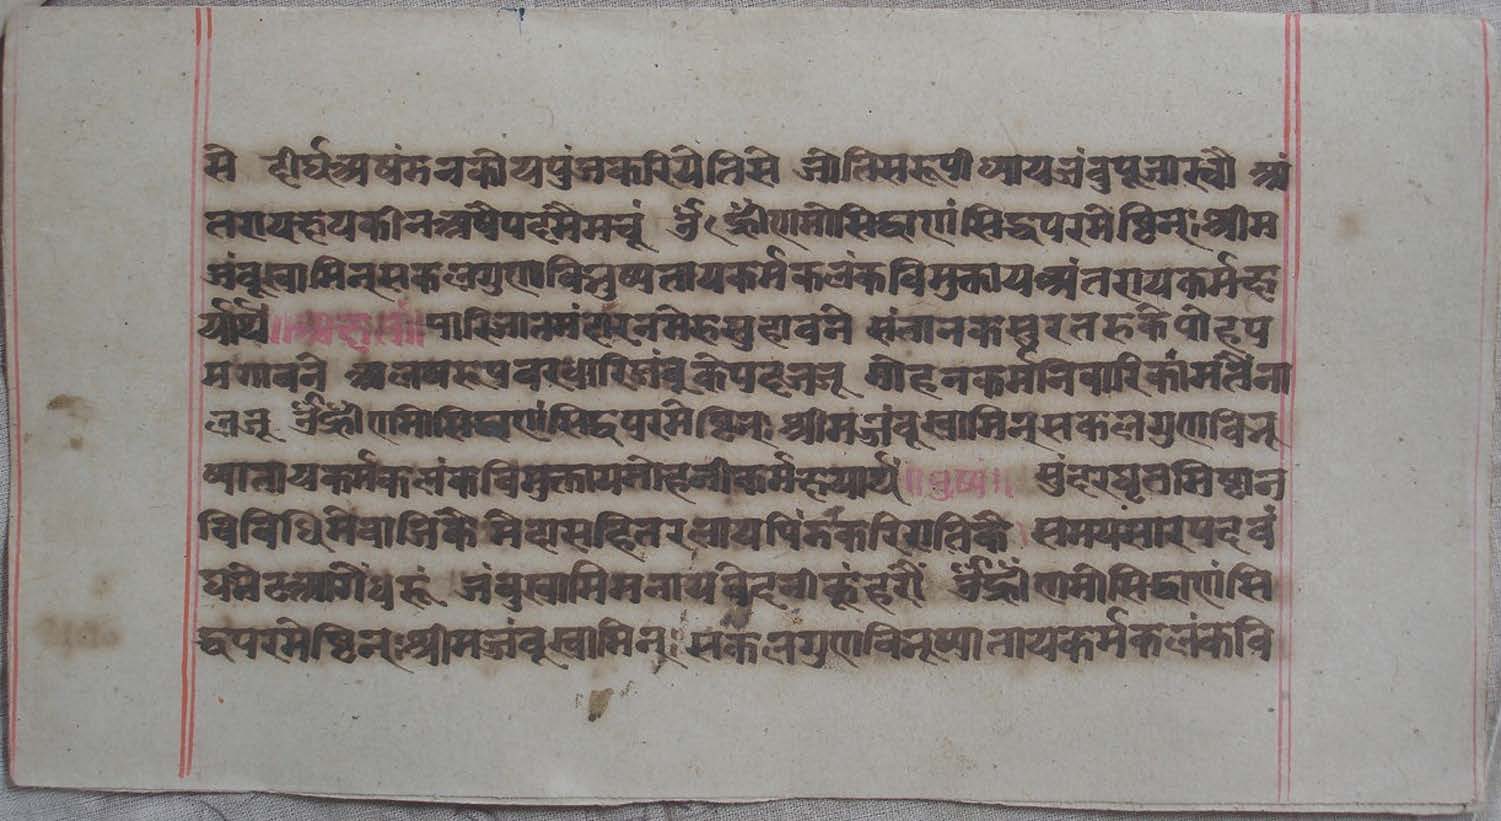 से दीर्घ अषंड नकोय पुंज करिये तिसे जोतिसरूपी ध्याय जंबु पूजा रचौ अं
तराय हय की न अषै पद मै मचूं ॐ ह्रीं णमो सिद्धाणं सिद्धपरमेष्ठिन् श्रीम
ज्जंबूस्वामिन् सकलगुणविभुष्यताय कर्मकलंकविमुक्ताय अंतरायकर्मक्ष
यार्थं ॥अक्षतं॥ पारिजात मंदार नमेरु सुहावने संतानक सुरतरु के पोहप
मगावने अलषरूप वरधारि जंबु के पद जजू मोहनकर्म निवारि काम तैं ना
लजू ॐ ह्रीं णमो सिद्धाणं सिद्धपरमेष्ठिन् श्रीमज्जंबूस्वामिन् सकलगुणविभू
ष्याताय कर्मकलंकविमुक्ताय मोहनीकर्मक्षयार्थं ॥पुष्पं॥ सुंदर घृत मिष्टान
विविधि मेवा जिकै मैदा सहित रलाय पिंड करि गतिकै समयसार पद वं
घ नैद आगैं धरूं जंबुस्वामि मनाय वेदनी कूं हरौं ॐ ह्रीं णमो सिद्धाणं सि
द्धपरमेष्ठिन् श्रीमज्जंबूस्वामिन् सकलगुणविभूष्याताय कर्मकलंकवि